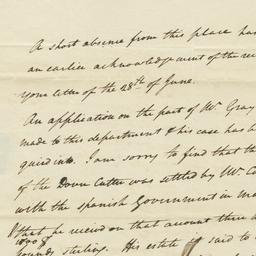 A short absence from this place has
an earlier acknowledgement of the rec
your letter of the 28th of June.
An application on the part of Mr. Gray
made to this department & his case has b
quired into. I am sorry to find that th
of the Dover Cutter was settled by Mr. C
with the Spanish Government in ma
that he received on that account there
pounds sterling. His estate is said to